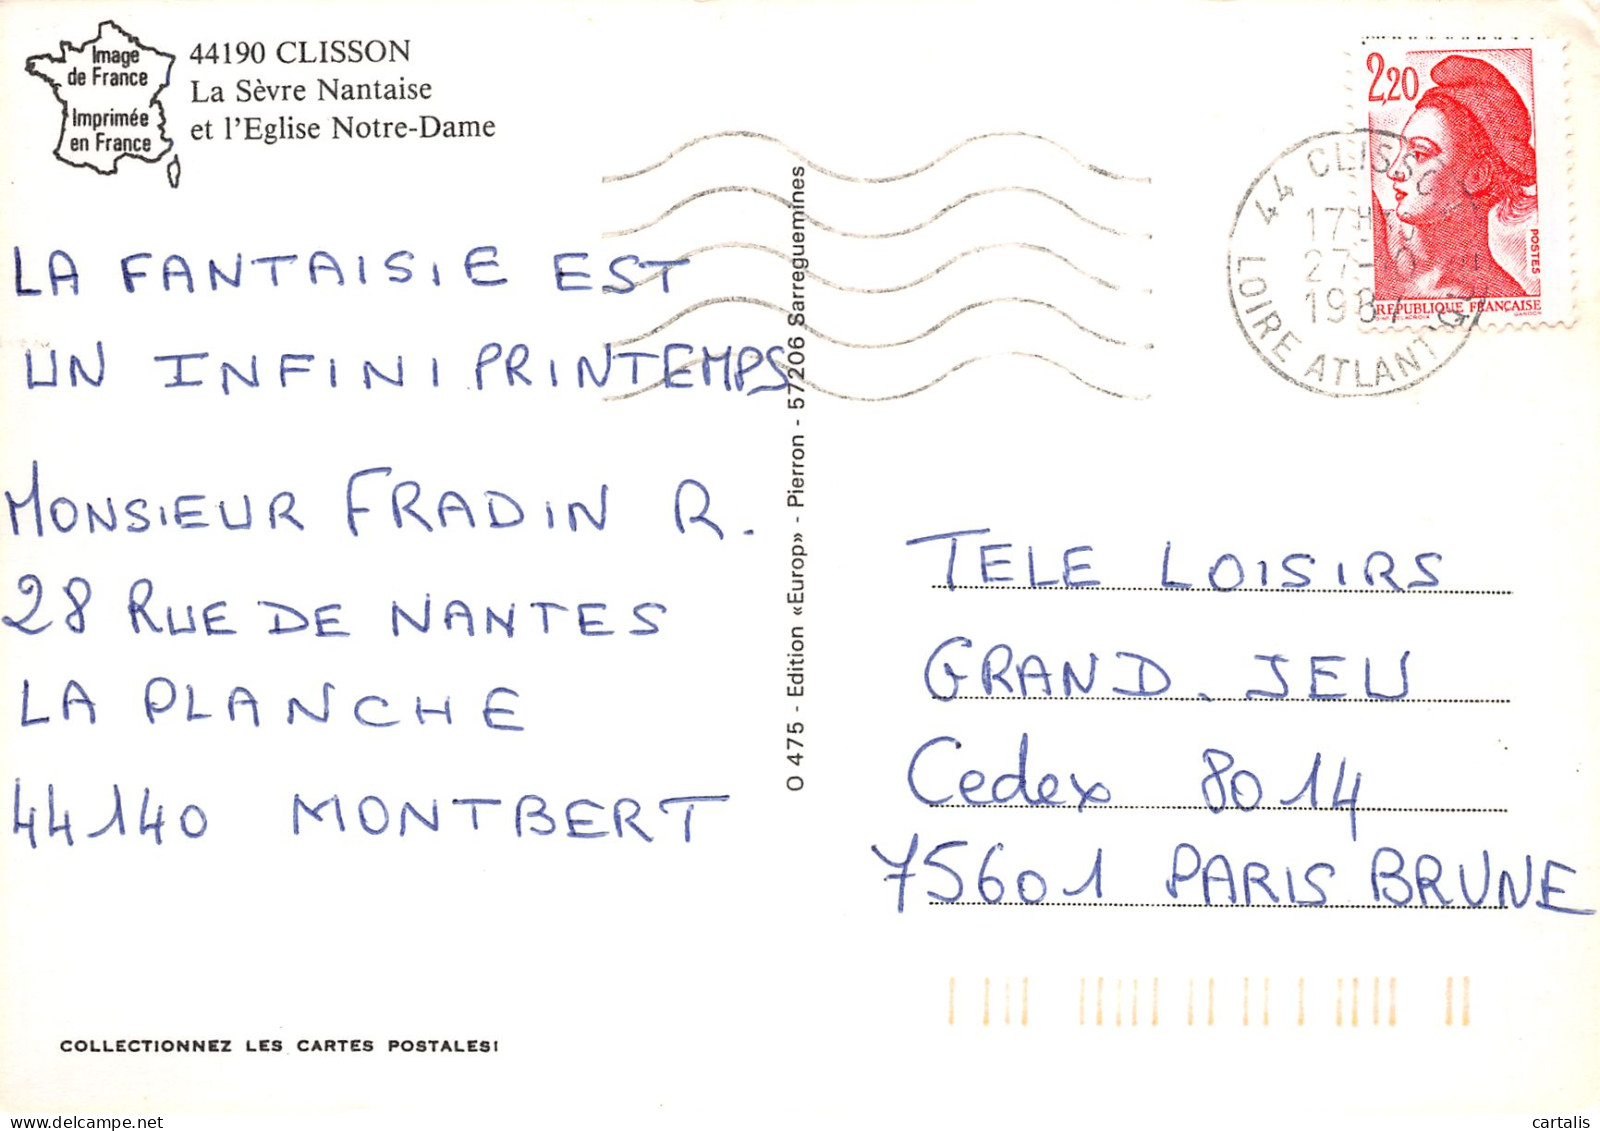 Image
de France
Imprimée
en France
44190 CLISSON
La Sèvre Nantaise
et l'Eglise Notre-Dame
2,20
POSTES
REPUBLIQUE FRANÇAISE
GANDON
44 CLISSON
17H
27-
1987
LOIRE ATLANTIQUE
LA FANTAISIE EST
UN INFINI PRINTEMPS
MONSIEUR FRADIN R.
28 RUE DE NANTES
LA PLANCHE
44140 MONTBERT
O 475 - Edition «Europ» - Pierron - 57206 Sarreguemines
TELE LOISIRS
GRAND. JEU
Cedex 8014
75601 PARIS BRUNE
COLLECTIONNEZ LES CARTES POSTALES!
cartalis
delcampe.net